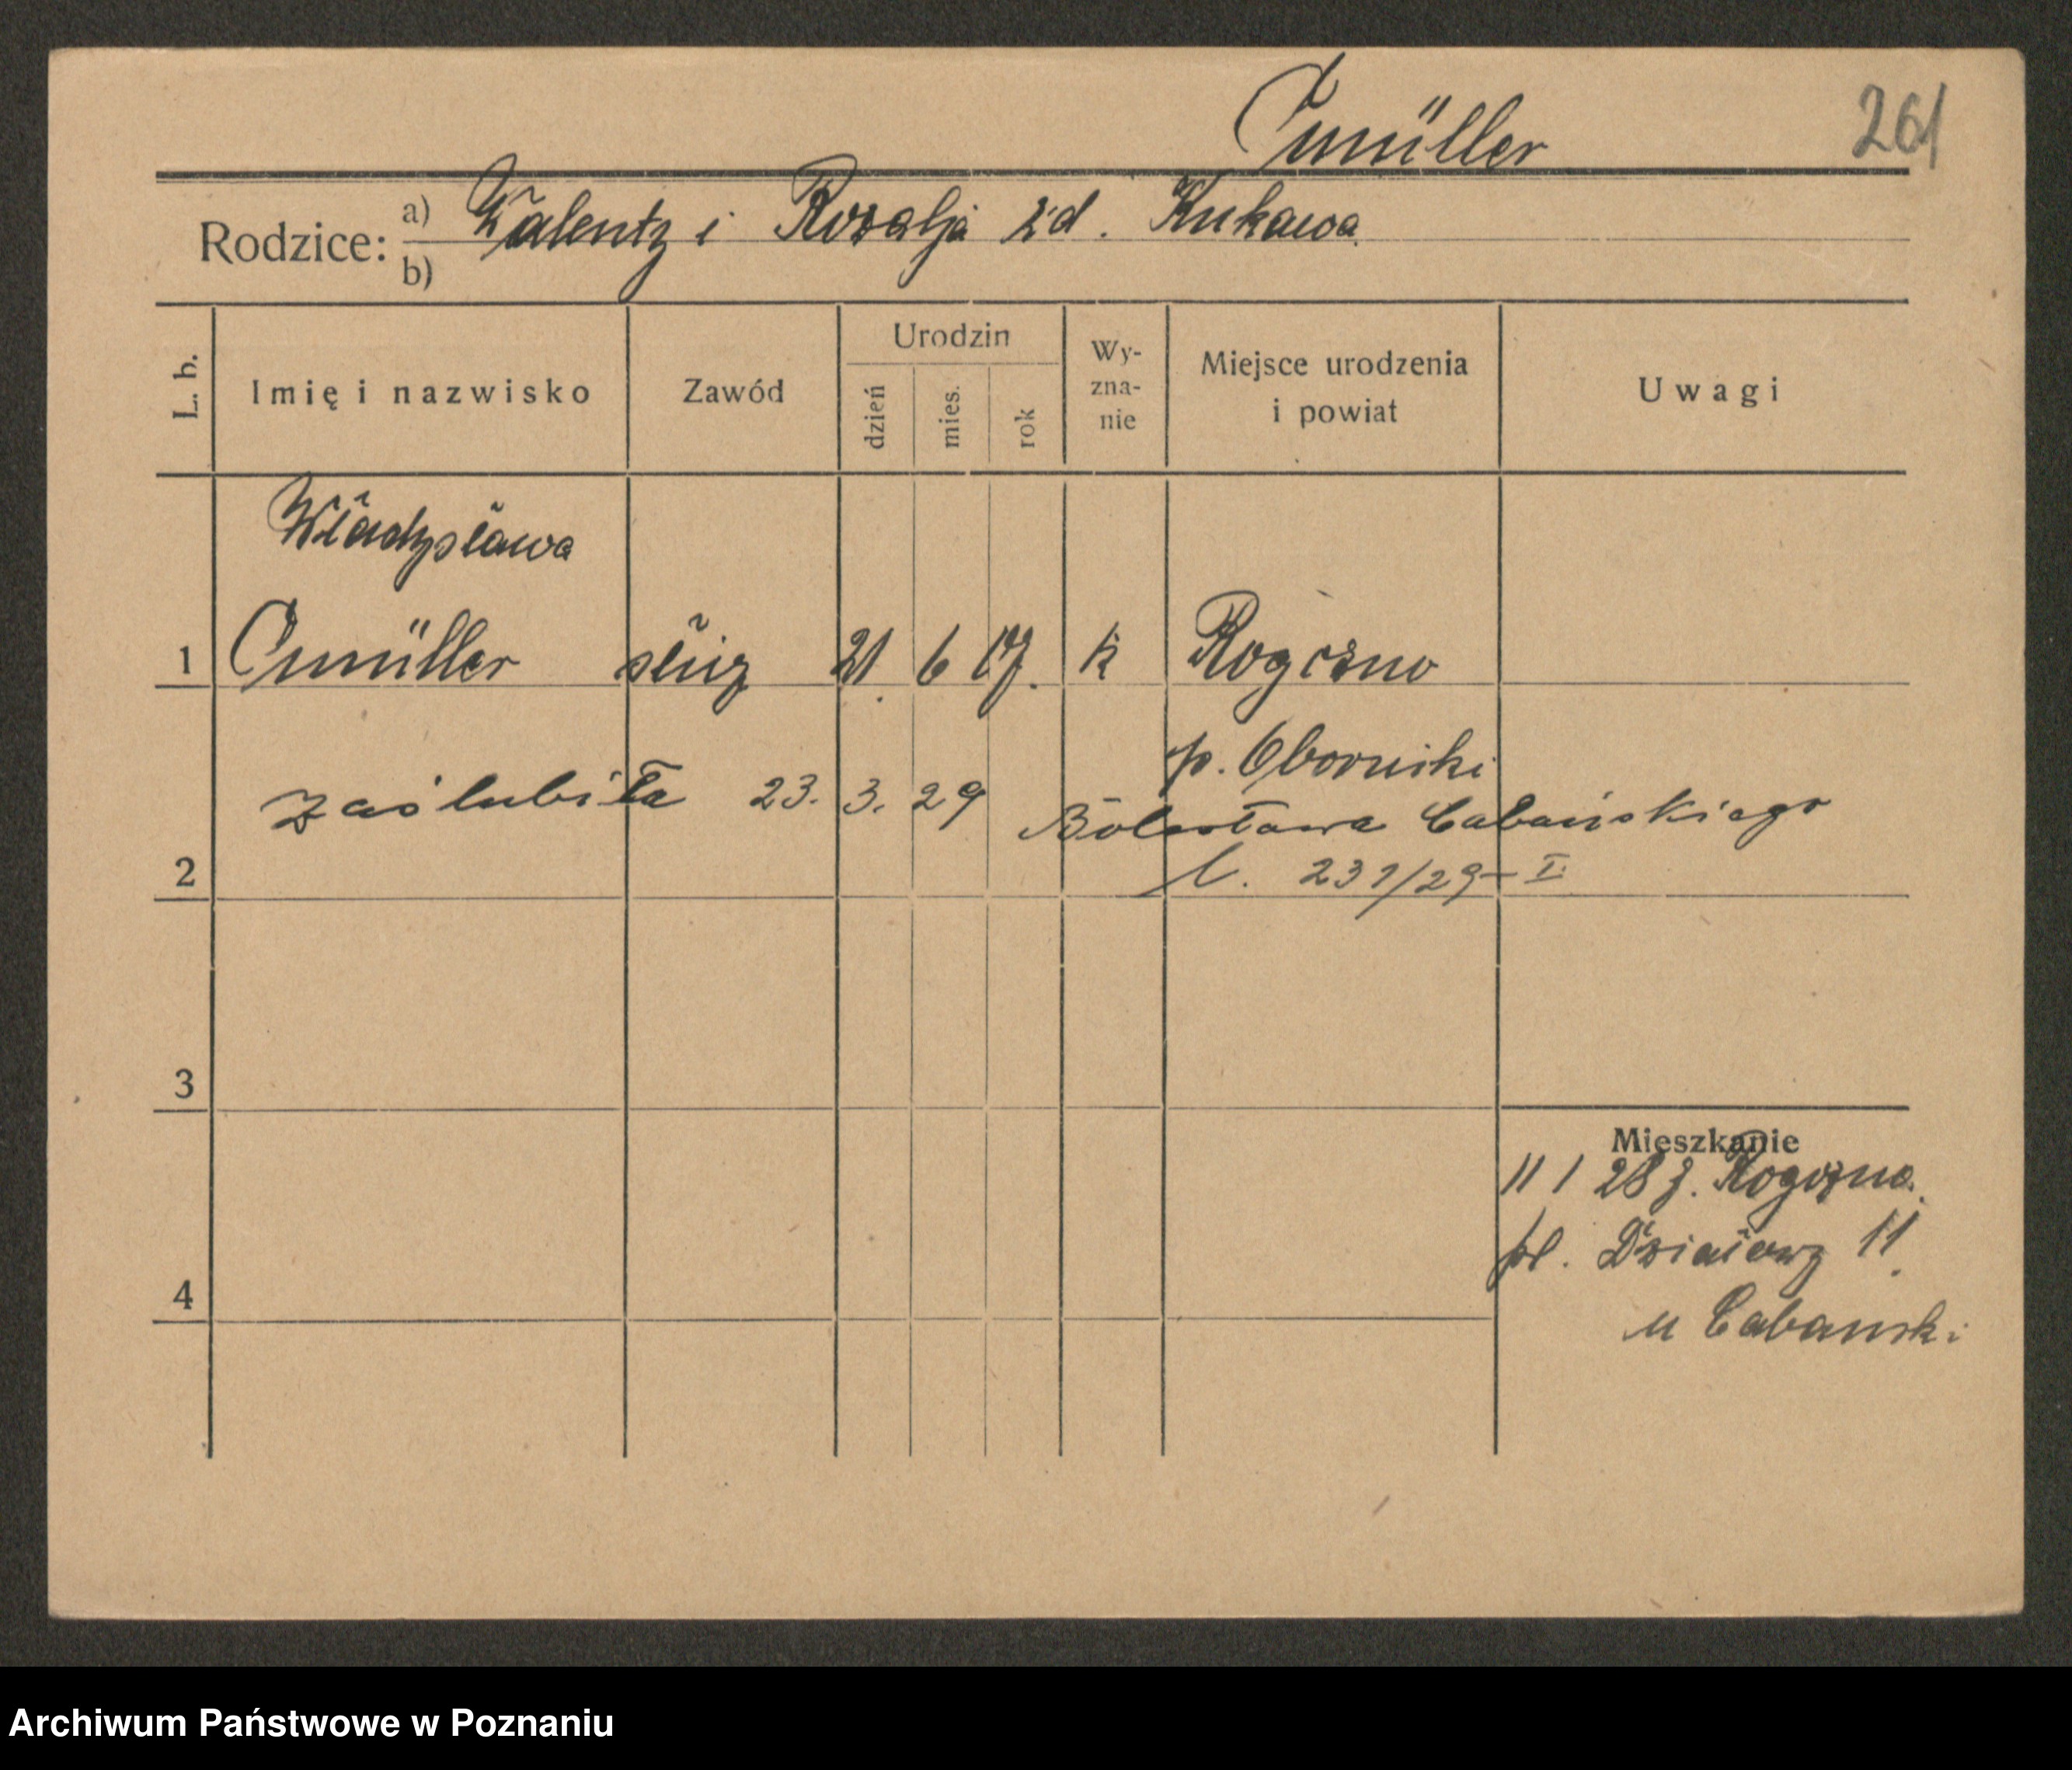 Cumüller
261
Rodzice: a) Walenty i Rozalja z d. Kukawa
b)
L. b. Imię i nazwisko Zawód Urodzin dzień mies. rok Wyzna-nie Miejsce urodzenia i powiat Uwagi
Władysława
1 Cumüller służ 21. 6 07. k Rogoźno
p. Oborniki
zaślubiła 23. 3. 29 Bolesława Cabańskiego
2 l. 231/29-I
3
Mieszkanie
11 1 28 z. Rogoźno.
pl. Działowy 11.
4
u Cabański
Archiwum Państwowe w Poznaniu